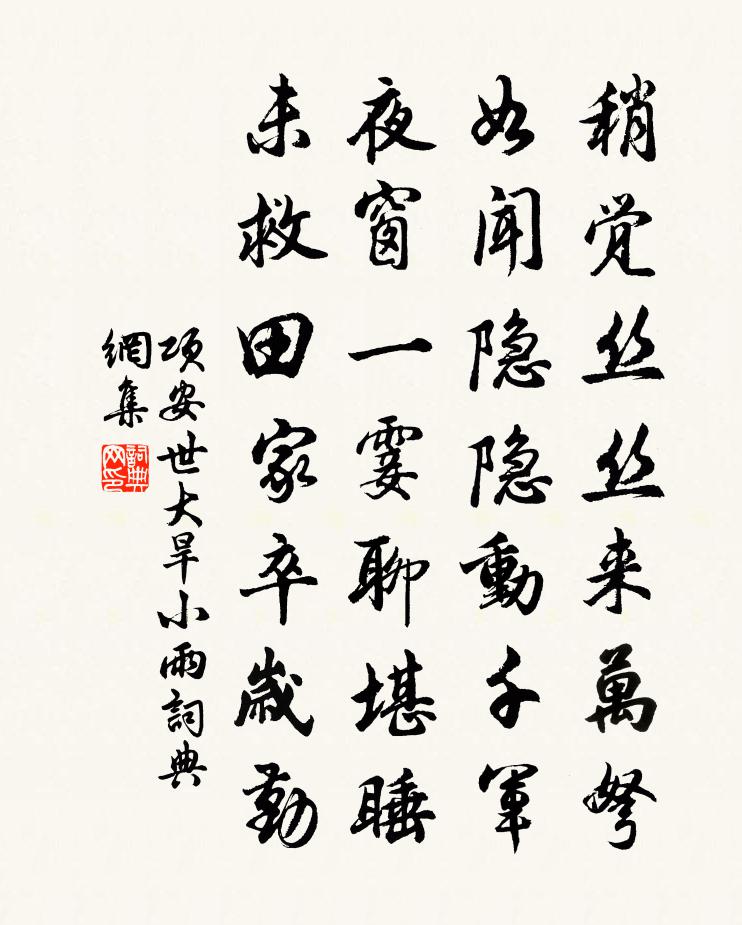 稍觉丝丝来萬弩
如闻隐隐動千軍
夜窗一霎聊堪睡
未救田家卒歲勤
项安世大旱小雨詞典
網集
詞典网印